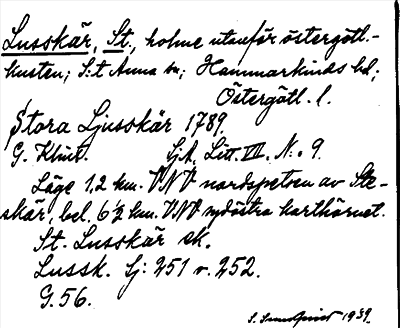 Lusskär, St., holme utanför östergötl.-
kusten; S:t Anna sn; Hammarkinds hd;
Östergötl. l.
Stora Ljusskär 1789.
G. Klint. SjA. Litt. VII. N:o 9.
Läge 1,2 km. VNV nordspetsen av Ste-
skär, bel. 6 1/2 km. VNV sydöstra karthörnet.
St. Lusskär ek.
Lussk. Sj: 251 o. 252.
G. 56.
1939.